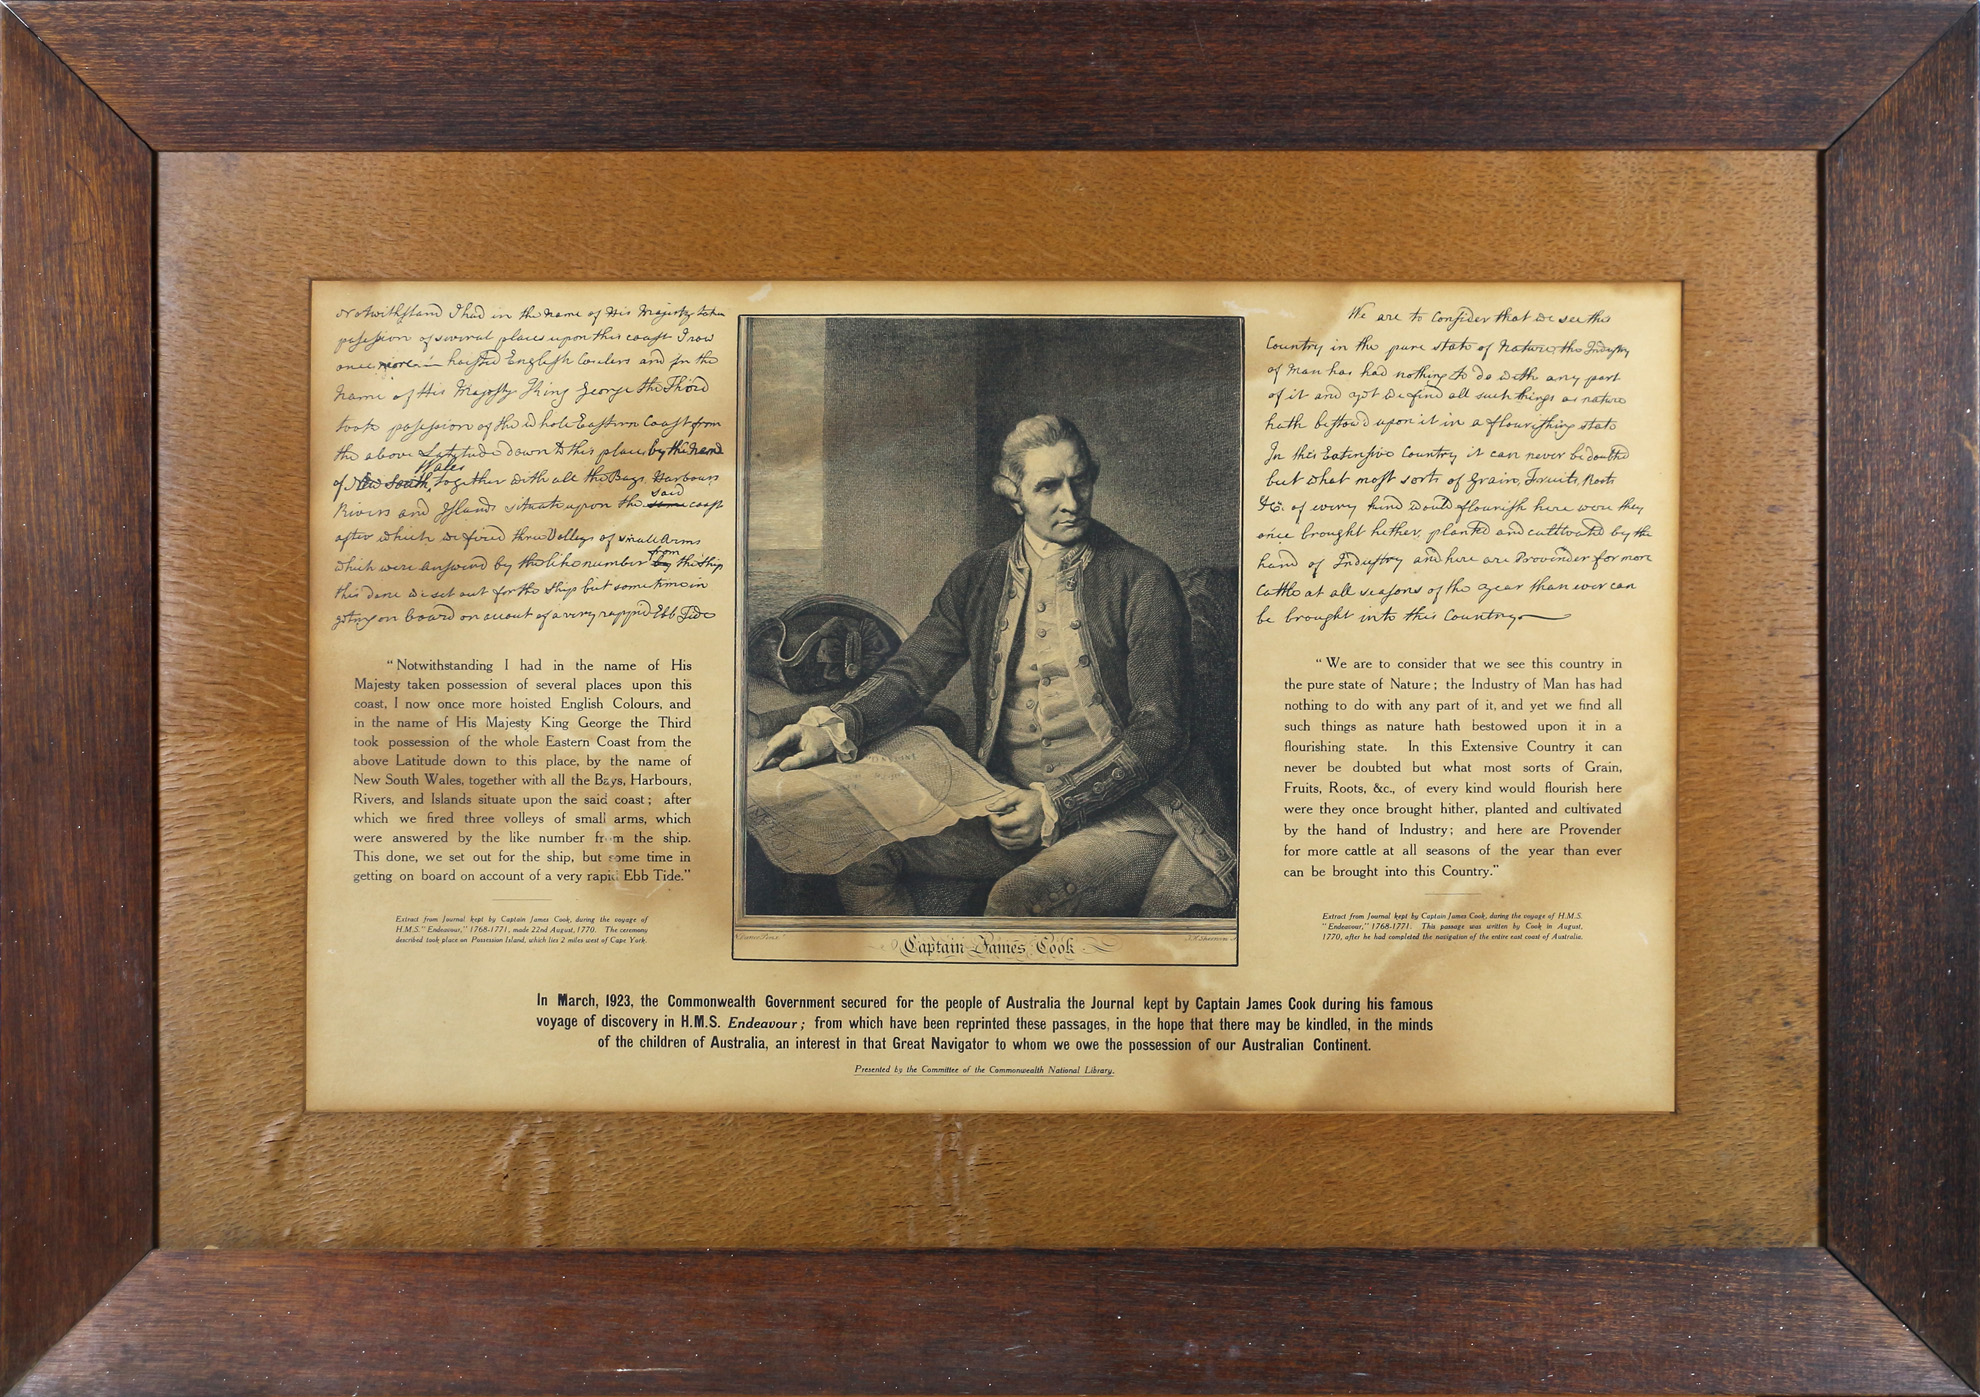 Notwithstand I had in the name of His Majesty taken
posession of several places upon this coast I now
once more hoisted English Coulers and in the
Name of His Majesty King George the Third
took posession of the whole Eastern Coast from
the above Latitude down to this place by the name
of New South
Wales
together with all the Bays, Harbours
Rivers and Islands situate upon the same coast
said
after which we fired three Volleys of small Arms
which were answerd by the like number by the Ship
from
this done we set out for the Ship but some time in
geting on board on account of a very rappid Ebb Tide
“Notwithstanding I had in the name of His
Majesty taken possession of several places upon this
coast, I now once more hoisted English Colours, and
in the name of His Majesty King George the Third
took possession of the whole Eastern Coast from the
above Latitude down to this place, by the name of
New South Wales, together with all the Bays, Harbours,
Rivers, and Islands situate upon the said coast; after
which we fired three volleys of small arms, which
were answered by the like number from the ship.
This done, we set out for the ship, but some time in
getting on board on account of a very rapid Ebb Tide.”
Extract from Journal kept by Captain James Cook, during the voyage of
H.M.S. "Endeavour," 1768-1771, made 22nd August, 1770. The ceremony
described took place on Possession Island, which lies 2 miles west of Cape York.
Captain James Cook
We are to Consider that we see this
Country in the pure state of Nature, the Industry
of Man has had nothing to do with any part
of it and yet we find all such things as nature
hath bestow'd upon it in a flourishing state
In this Extensive Country it can never be doubted
but what most sorts of Grain, Fruits, Roots
&c. of every kind would flourish here were they
once brought hether, planted and cultivated by the
hand of Industry, and here are Provender for more
Cattle at all seasons of the year than ever can
be brought into this Country
“We are to consider that we see this country in
the pure state of Nature; the Industry of Man has had
nothing to do with any part of it, and yet we find all
such things as nature hath bestowed upon it in a
flourishing state. In this Extensive Country it can
never be doubted but what most sorts of Grain,
Fruits, Roots, &c., of every kind would flourish here
were they once brought hither, planted and cultivated
by the hand of Industry; and here are Provender
for more cattle at all seasons of the year than ever
can be brought into this Country.”
Extract from Journal kept by Captain James Cook, during the voyage of H.M.S.
"Endeavour," 1768-1771. This passage was written by Cook in August,
1770, after he had completed the navigation of the entire east coast of Australia.
In March, 1923, the Commonwealth Government secured for the people of Australia the Journal kept by Captain James Cook during his famous
voyage of discovery in H.M.S. Endeavour; from which have been reprinted these passages, in the hope that there may be kindled, in the minds
of the children of Australia, an interest in that Great Navigator to whom we owe the possession of our Australian Continent.
Presented by the Committee of the Commonwealth National Library.